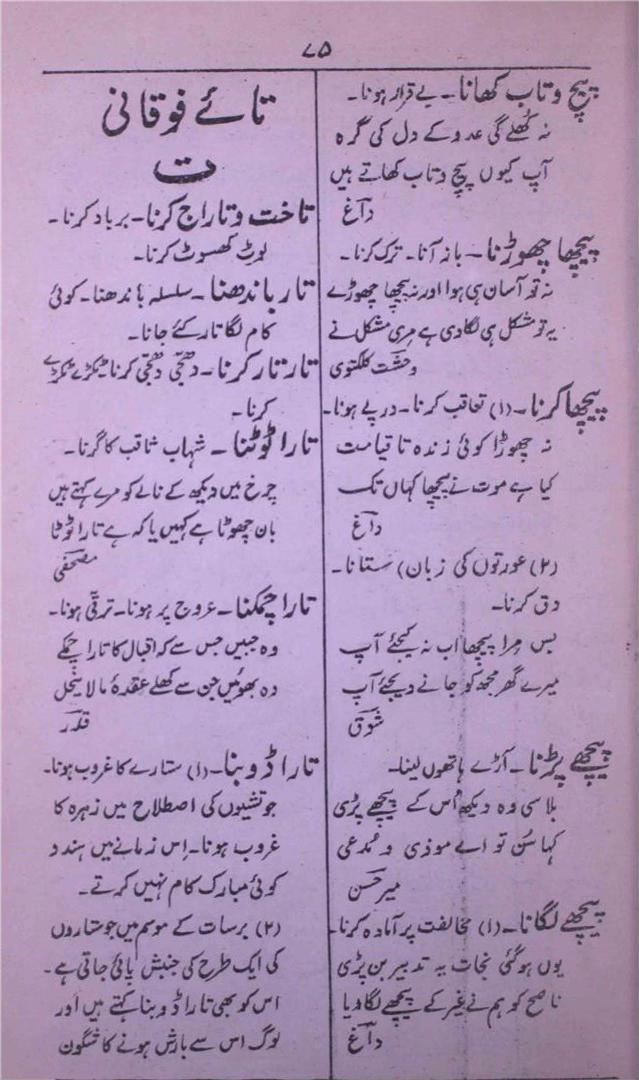 ۷۵
پیچ و تاب کھانا۔ بے قرار ہونا۔
نہ کُھلے گی عدو کے دل کی گرہ
آپ کیوں پیچ و تاب کھاتے ہیں
داغؔ
پیچھا چھوڑنا۔ باز آنا۔ ترک کرنا۔
نہ تو آسان ہی ہوا اور نہ پیچھا چھوڑے
یہ تو مشکل ہی لگادی ہے مری مشکل نے
وحشت کلکتوی
پیچھا کرنا۔ (۱) تعاقب کرنا۔ درپے ہونا۔
نہ چھوڑا کوئی زندہ تا قیامت
کیا ہے موت نے پیچھا کہاں تک
داغؔ
(۲) عورتوں کی زبان) ستانا۔
دق کرنا۔
بس مرا پیچھا اب نہ کیجئے آپ
میرے گھر مجھ کو جانے دیجئے آپ
شوقؔ
پیچھے پڑنا۔ آڑے ہاتھوں لینا۔
بلا سی وہ دیکھ اُس کے پیچھے پڑی
کہا سُن تو اے موذی و مُدعی
میر حسنؔ
پیچھے لگانا۔ (۱) مخالفت پر آمادہ کرنا۔
یوں ہوگئی نجات یہ تدبیر بن پڑی
ناصح کو ہم نے غیر کے پیچھے لگا دیا
داغؔ
تائے فوقانی
ت
تاخت و تاراج کرنا۔ برباد کرنا۔
لوٹ کھسوٹ کرنا۔
تار باندھنا۔ سلسلہ باندھنا۔ کوئی
کام لگاتار کئے جانا۔
تار تار کرنا۔ دھجّی دھجّی کرنا۔ ٹکڑے ٹکڑے
کرنا۔
تارا ٹوٹنا۔ شہاب ثاقب کا گرنا۔
چرخ میں دیکھ کے نالے کو مرے کہتے ہیں
بان چھوٹا ہے کہیں یا کہ ہے تارا ٹوٹا
مصحفیؔ
تارا چمکنا۔ عروج پر ہونا۔ ترقّی ہونا۔
وہ جبیں جس سے کہ اقبال کا تارا چمکے
وہ بھوئیں جن سے کھلے عقدۂ مالاینحل
قدرؔ
تارا ڈوبنا۔ (۱) ستارے کا غروب ہونا۔
جوتشیوں کی اصطلاح میں زہرہ کا
غروب ہونا۔ اِس زمانے میں ہندو
کوئی مبارک کام نہیں کرتے۔
(۲) برسات کے موسم میں جو ستاروں
کی ایک طرح کی جنبش پائی جاتی ہے۔
اس کو بھی تارا ڈوبنا کہتے ہیں اور
لوگ اس سے بارش ہونے کا شگون